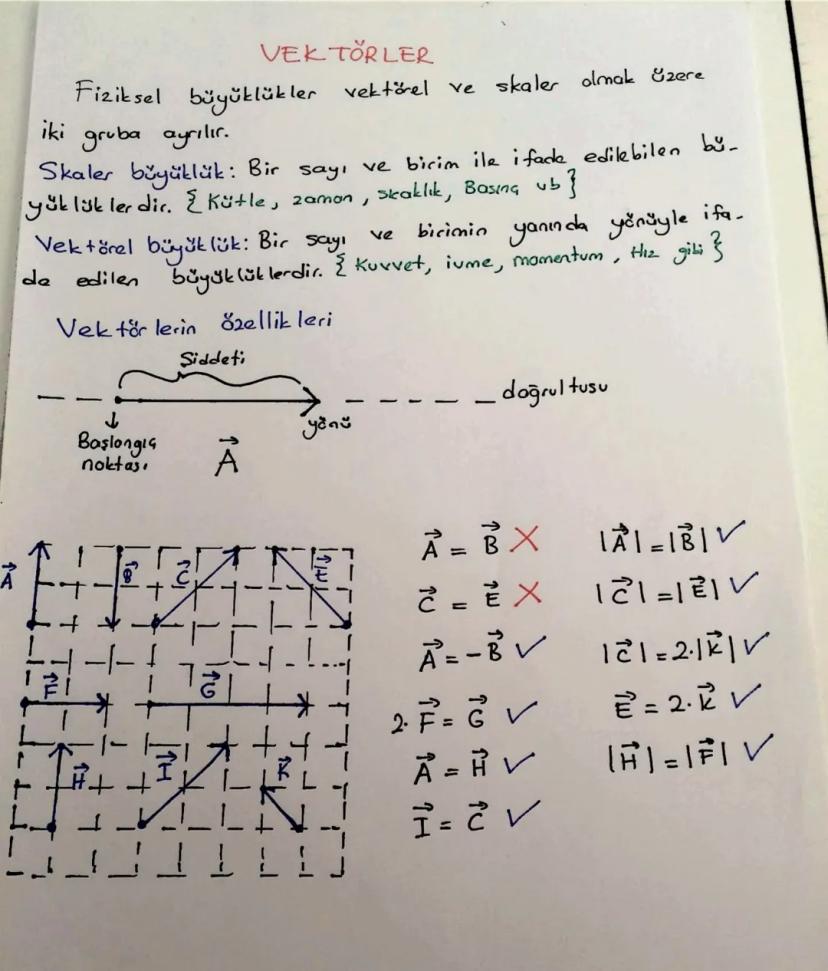 VEKTÖRLER
Fiziksel büyüklükler vektörel ve skaler olmak üzere
iki gruba ayrılır.
Skaler büyüklük: Bir sayı ve birim ile ifade edilebilen bü-
yüklüklerdir. { Kütle, zaman, sıcaklık, Basınç vb }
Vektörel büyüklük: Bir sayı ve birimin yanında yönüyle ifa-
de edilen büyüklüklerdir. { Kuvvet, ivme, momentum, Hız gibi }
Vektörlerin özellikleri
Şiddeti
doğrultusu
yönü
Başlangıç
noktası
A⃗
A⃗ B⃗ C⃗ E⃗
F⃗ G⃗
H⃗ I⃗ K⃗
A⃗ = B⃗ ✗
C⃗ = E⃗ ✗
A⃗ = -B⃗ ✓
2. F⃗ = G⃗ ✓
A⃗ = H⃗ ✓
I⃗ = C⃗ ✓
|A⃗| = |B⃗| ✓
|C⃗| = |E⃗| ✓
|C⃗| = 2.|K⃗| ✓
E⃗ = 2. K⃗ ✓
|H⃗| = |F⃗| ✓